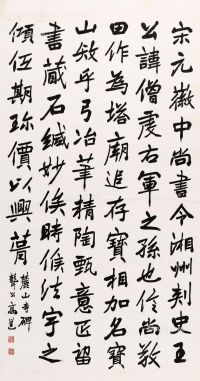 宋元徽中尚書令湘州刺史王
公諱僧虔右軍之孫也信尚敬
田作為塔廟追存寶相加名寶
山乎弓冶筆精陶甄意匠留
書藏石緘妙俟時候法宇之
傾低期珍價以興葺
麓山寺碑